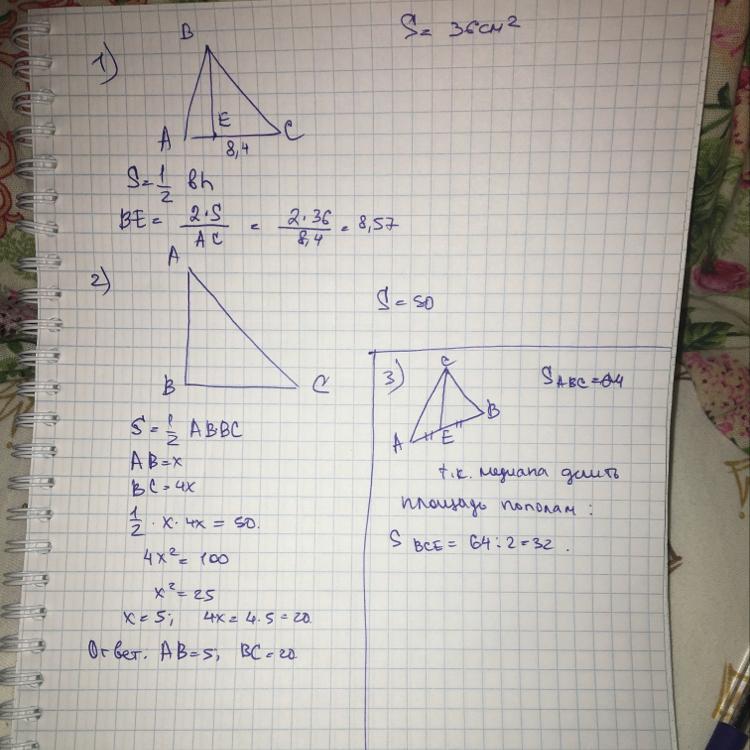 S = 36 см²
1)
B
A E C
8,4
S = 1/2 bh
BE = 2·S / AC = 2·36 / 8,4 = 8,57
2)
A
B C
S = 50
S = 1/2 ABBC
AB = x
BC = 4x
1/2 · x · 4x = 50.
4x² = 100
x² = 25
x = 5; 4x = 4·5 = 20
Ответ. AB = 5; BC = 20
3)
C
A E B
S ABC = 64
т.к. медиана делить
площадь пополам:
S BCE = 64 : 2 = 32.